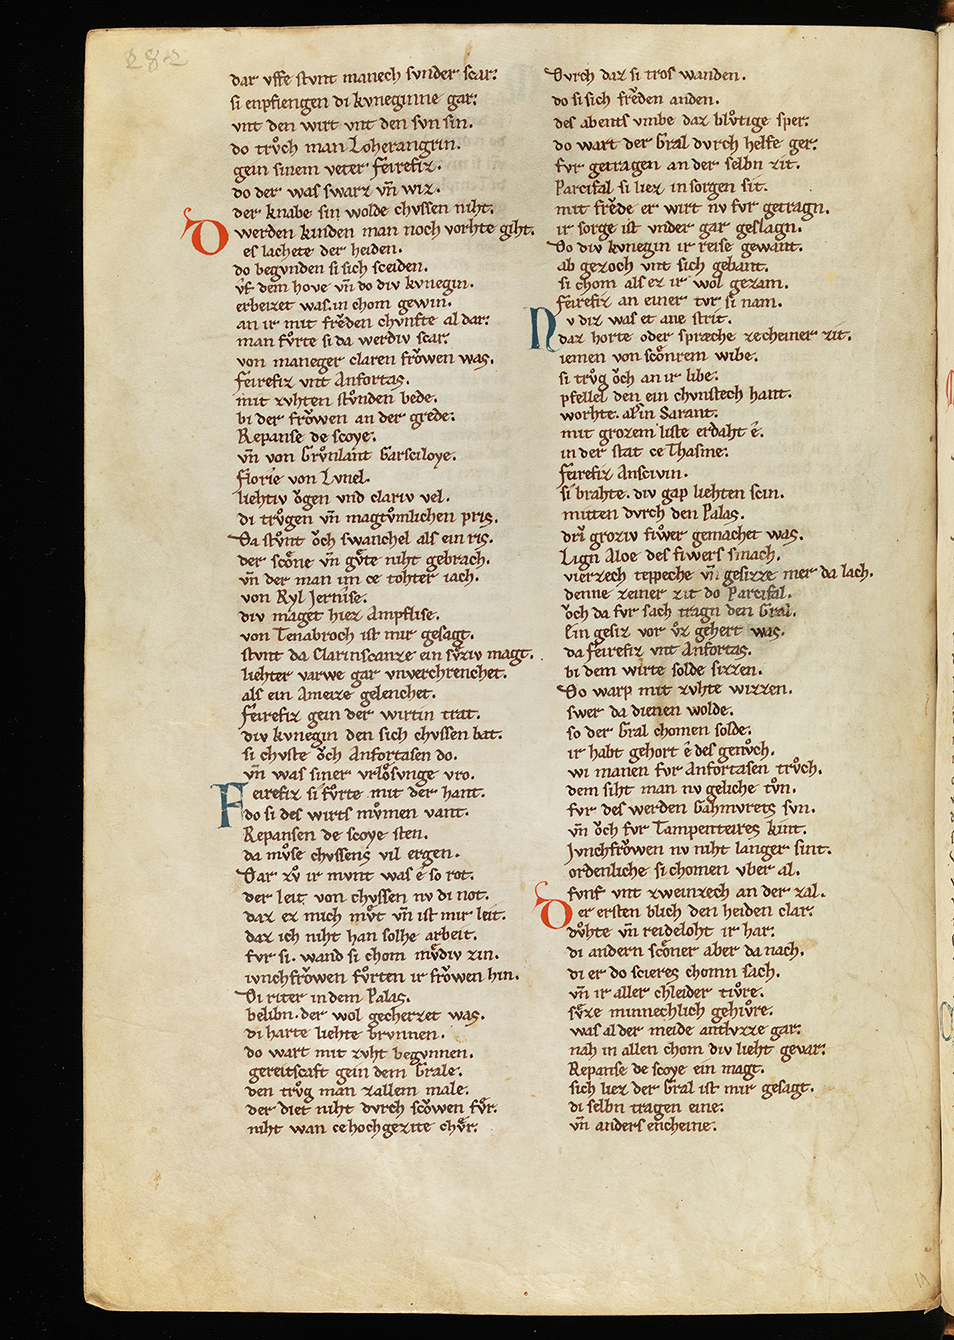 282
dar vffe stvnt manech svnder scar.
si enpfiengen di kvneginne gar.
vnt den wirt vnt den svn sin.
do trvͦch man Loherangrin.
gein sinem veter feirefiz.
do der was swarz vn̄ wiz.
der knabe sin wolde chvssen niht.
D werden kinden man noch vorhte giht.
es lachete der heiden.
do begvnden si sich sceiden.
vf dem hove vn̄ do div kvnegin.
erbeizet was. in chom gewin.
an ir mit frevͦden chvnfte al dar.
man fvͦrte si da werdiv scar.
von maneger claren frowen was.
feirefiz vnt Anfortas.
mit zvhten stvͦnden bede.
bi der frowen an der grede.
Repanse de scoye.
vn̄ von Grvͦnlant Garsciloye.
florie von Lvnel.
liehtiv ogen vnd clariv vel.
di trvͦgen vn̄ magtvͦmlichen pris.
Da stvͦnt och swanchel als ein ris.
der scone vn̄ gvͦte niht gebrach.
vn̄ der man im ce tohter iach.
von Ryl Jernise.
div maget hiez Ampflise.
von Tenabroch ist mir gesagt.
stvnt da Clarinscanze ein svͦziv magt.
liehter varwe gar vnverchrenchet.
als ein Ameize gelenchet.
feirefiz gein der wirtin trat.
div kvnegin den sich chvssen bat.
si chvste och Anfortasen do.
vn̄ was siner vrlosvnge vro.
Feirefiz si fvͦrte mit der hant.
do si des wirts mvͦmen vant.
Repansen de scoye sten.
da mvͦse chvssens vil ergen.
Dar zvͦ ir mvnt was e so rot.
der leit von chvssen nv di not.
daz ez mich mvͦt vn̄ ist mir leit.
daz ich niht han solhe arbeit.
fvr si. wand si chom mvͦdiv zin.
ivnchfrowen fvͦrten ir frowen hin.
Di riter in dem Palas.
belibn. der wol gecherzet was.
di harte liehte brvnnen.
do wart mit zvht begvnnen.
gereitscaft gein dem Grale.
den trvͦg man zallem male.
der diet niht dvrch scowen fvͦr.
niht wan ce hochgezite chvͦr.
Dvrch daz si tros wanden.
do si sich freͮden anden.
des abents vmbe daz blvͦtige sper.
do wart der Gral dvrch helfe ger.
fvr getragen an der selbn zit.
Parcifal si liez in sorgen sit.
mit freͮde er wirt nv fvr getragn.
ir sorge ist vnder gar geslagn.
Do div kvnegin ir reise gewant.
ab gezoch vnt sich gebant.
si chom als ez ir wol gezam.
feirefiz an einer tvr si nam.
Nv diz was et ane strit.
daz horte oder spræche zecheiner zit.
iemen von sconrem wibe.
si trvͦg och an ir libe.
pfellel den ein chvnstech hant.
worhte. als in Sarant.
mit grozem liste erdaht e.
in der stat ce Thasme.
feirefiz Anscivin.
si brahte. div gap liehten scin.
mitten dvrch den Palas.
dri groziv fiwer gemachet was.
Lign Aloe des fiwers smach.
vierzech teppeche vn̄ gesizze mer da lach.
denne zeiner zit do Parcifal.
och da fvr sach tragn den Gral.
Ein gesiz vor vz gehert was.
da feirefiz vnt Anfortas.
bi dem wirte solde sizzen.
Do warp mit zvhte wizzen.
swer da dienen wolde.
so der Gral chomen solde.
ir habt gehort e des genvͦch.
wi manen fvr Anfortasen trvͦch.
dem siht man nv geliche tvͦn.
fvr des werden Gahmvrets svn.
vn̄ och fvr Tampenteires kint.
Jvnchfrowen nv niht langer sint.
ordenliche si chomen vber al.
fvnf vnt zweinzech an der zal.
Der ersten blich den heiden clar.
dvͦhte vn̄ reideloht ir har.
di andern sconer aber da nach.
di er do scieres chomn sach.
vn̄ ir aller chleider tivre.
svͦze minnechlich gehivre.
was al der meide antlvzze gar.
nah in allen chom div lieht gevar.
Repanse de scoye ein magt.
sich liez der Gral ist mir gesagt.
di selbn tragen eine.
vn̄ anders encheine.